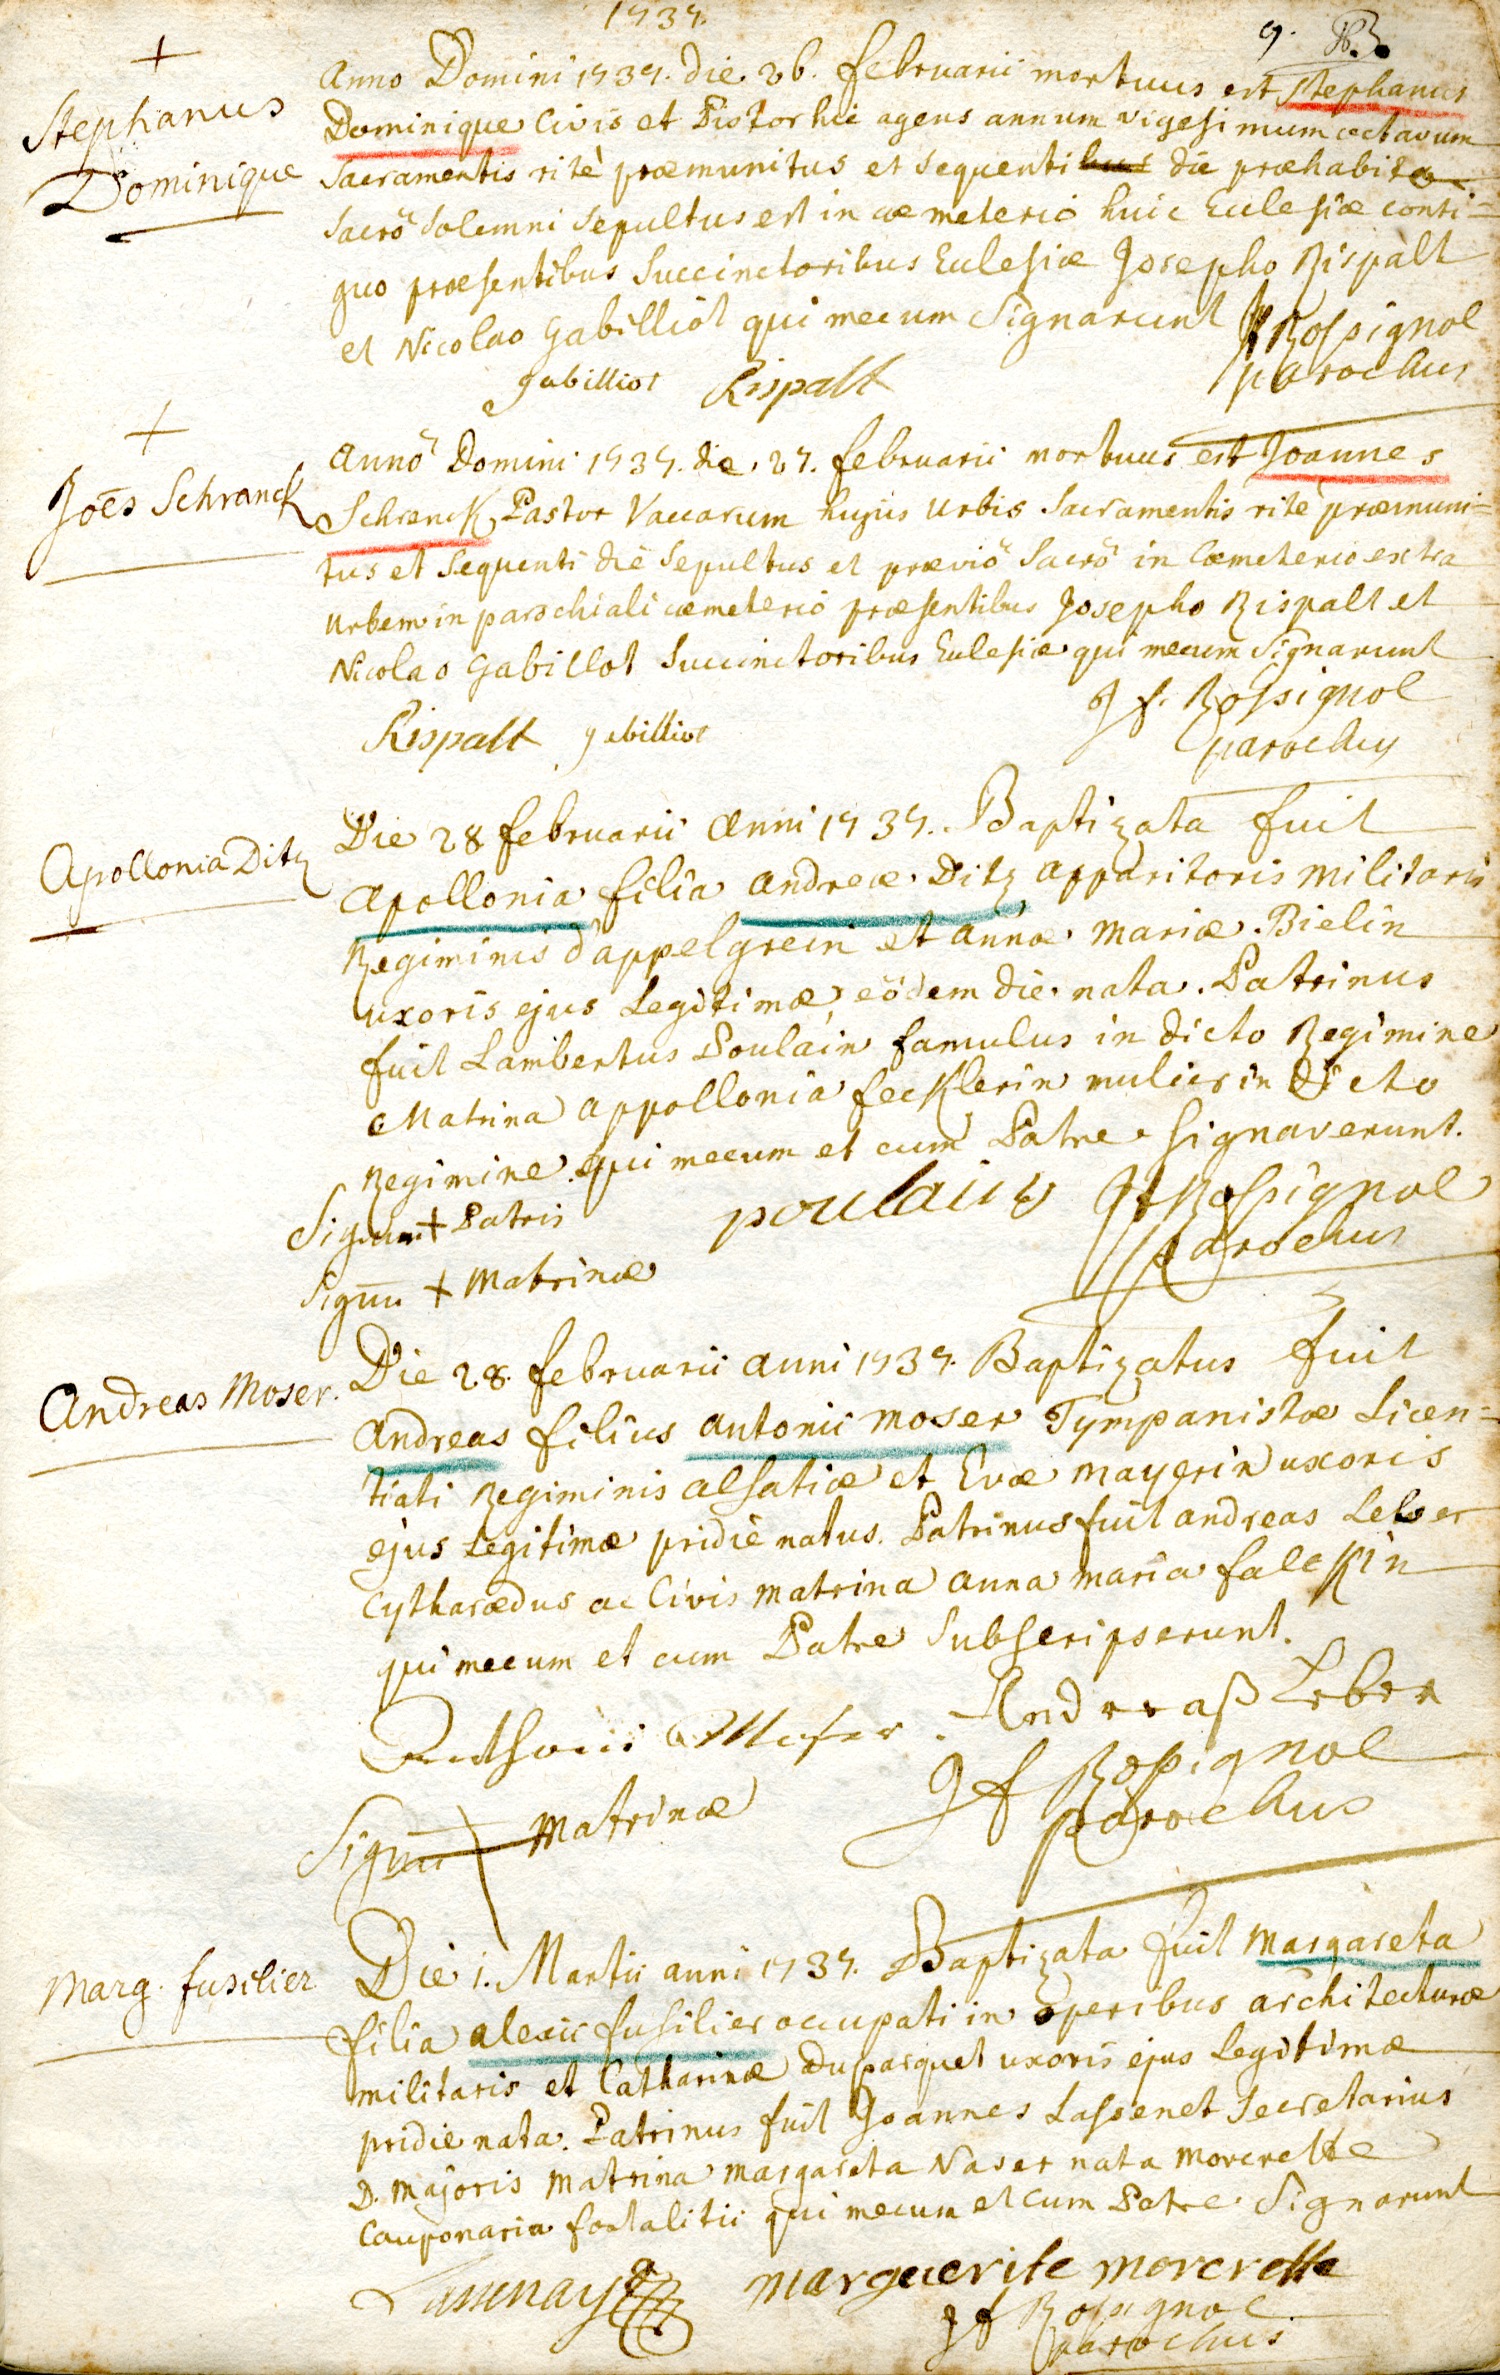 1737.
9.
+
Stephanus
Dominique
Anno Domini 1737. die 26. februarii mortuus est Stephanus
Dominique Civis et Pistor hic agens annum vigesimum octavum
Sacramentis ritè præmunitus et sequenti die præhabito
sacrô solemni sepultus est in cæmeteriô huic Eclesiæ conti=
guo præsentibus succinctoribus Eclesiæ Josepho Rispalt
et Nicolao Gabilliot qui mecum signarunt
JfRossignol
parochus
gabilliot Rispalt
+
Joēs Schranck
Annô Domini 1737. die 27. februarii mortuus est Joannes
Schrenck Pastor Vaccarum hujus urbis Sacramentis rite præmuni=
tus et sequenti die sepultus et præviô Sacrô in Cæmeterio extra
urbem in parochiali cæmeteriô præsentibus Josepho Rispalt et
Nicolao Gabillot succinctoribus Eclesiæ qui mecum signarunt
Jf. Rossignol
parochus
Rispalt gabilliot
Apollonia Ditz
Die 28 februarii Anni 1737. Baptizata fuit
Apollonia filia Andreæ Ditz apparitoris militaris
Regiminis d'appelgrein et Annæ Mariæ Bielin
uxoris ejus Legitimæ, eôdem die nata. Patrinus
fuit Lambertus Poulain famulus in dicto Regimine
Matrina Appollonia fecklerin mulier in dicto
Regimine qui mecum et cum Patre signaverunt.
Signum + Patris poulain JfRossignol
parochus
Signū + Matrinæ
Andreas Moser.
Die 28. februarii anni 1737. Baptizatus fuit
Andreas filius Antonii Moser Tympanistæ Licen=
tiati Regiminis Alsatiæ et Evæ Mayerin uxoris
ejus Legitimæ pridiè natus. Patrinus fuit Andreas Leber
Cytharædus ac Civis Matrina Anna Maria falckin
qui mecum et cum Patre subscripserunt.
Anthonii Moser Andreaß Leber
Jf Rossignol
parochus
Signū + Matrinæ
Marg. fusilier
Die 1. Martii anni 1737. Baptizata fuit Margareta
filia Alexii fusilier occupati in operibus architecturæ
militaris et Catharinæ Duparquet uxoris ejus Legitimæ
pridie nata. Patrinus fuit Joannes Lassenet Secretarius
D. Majoris Matrina Margareta Naser nata Morcrette
Cauponaria fortalitii qui mecum et cum Patre signarunt
Lassenay marguerite morcrette
Jf Rossignol
parochus